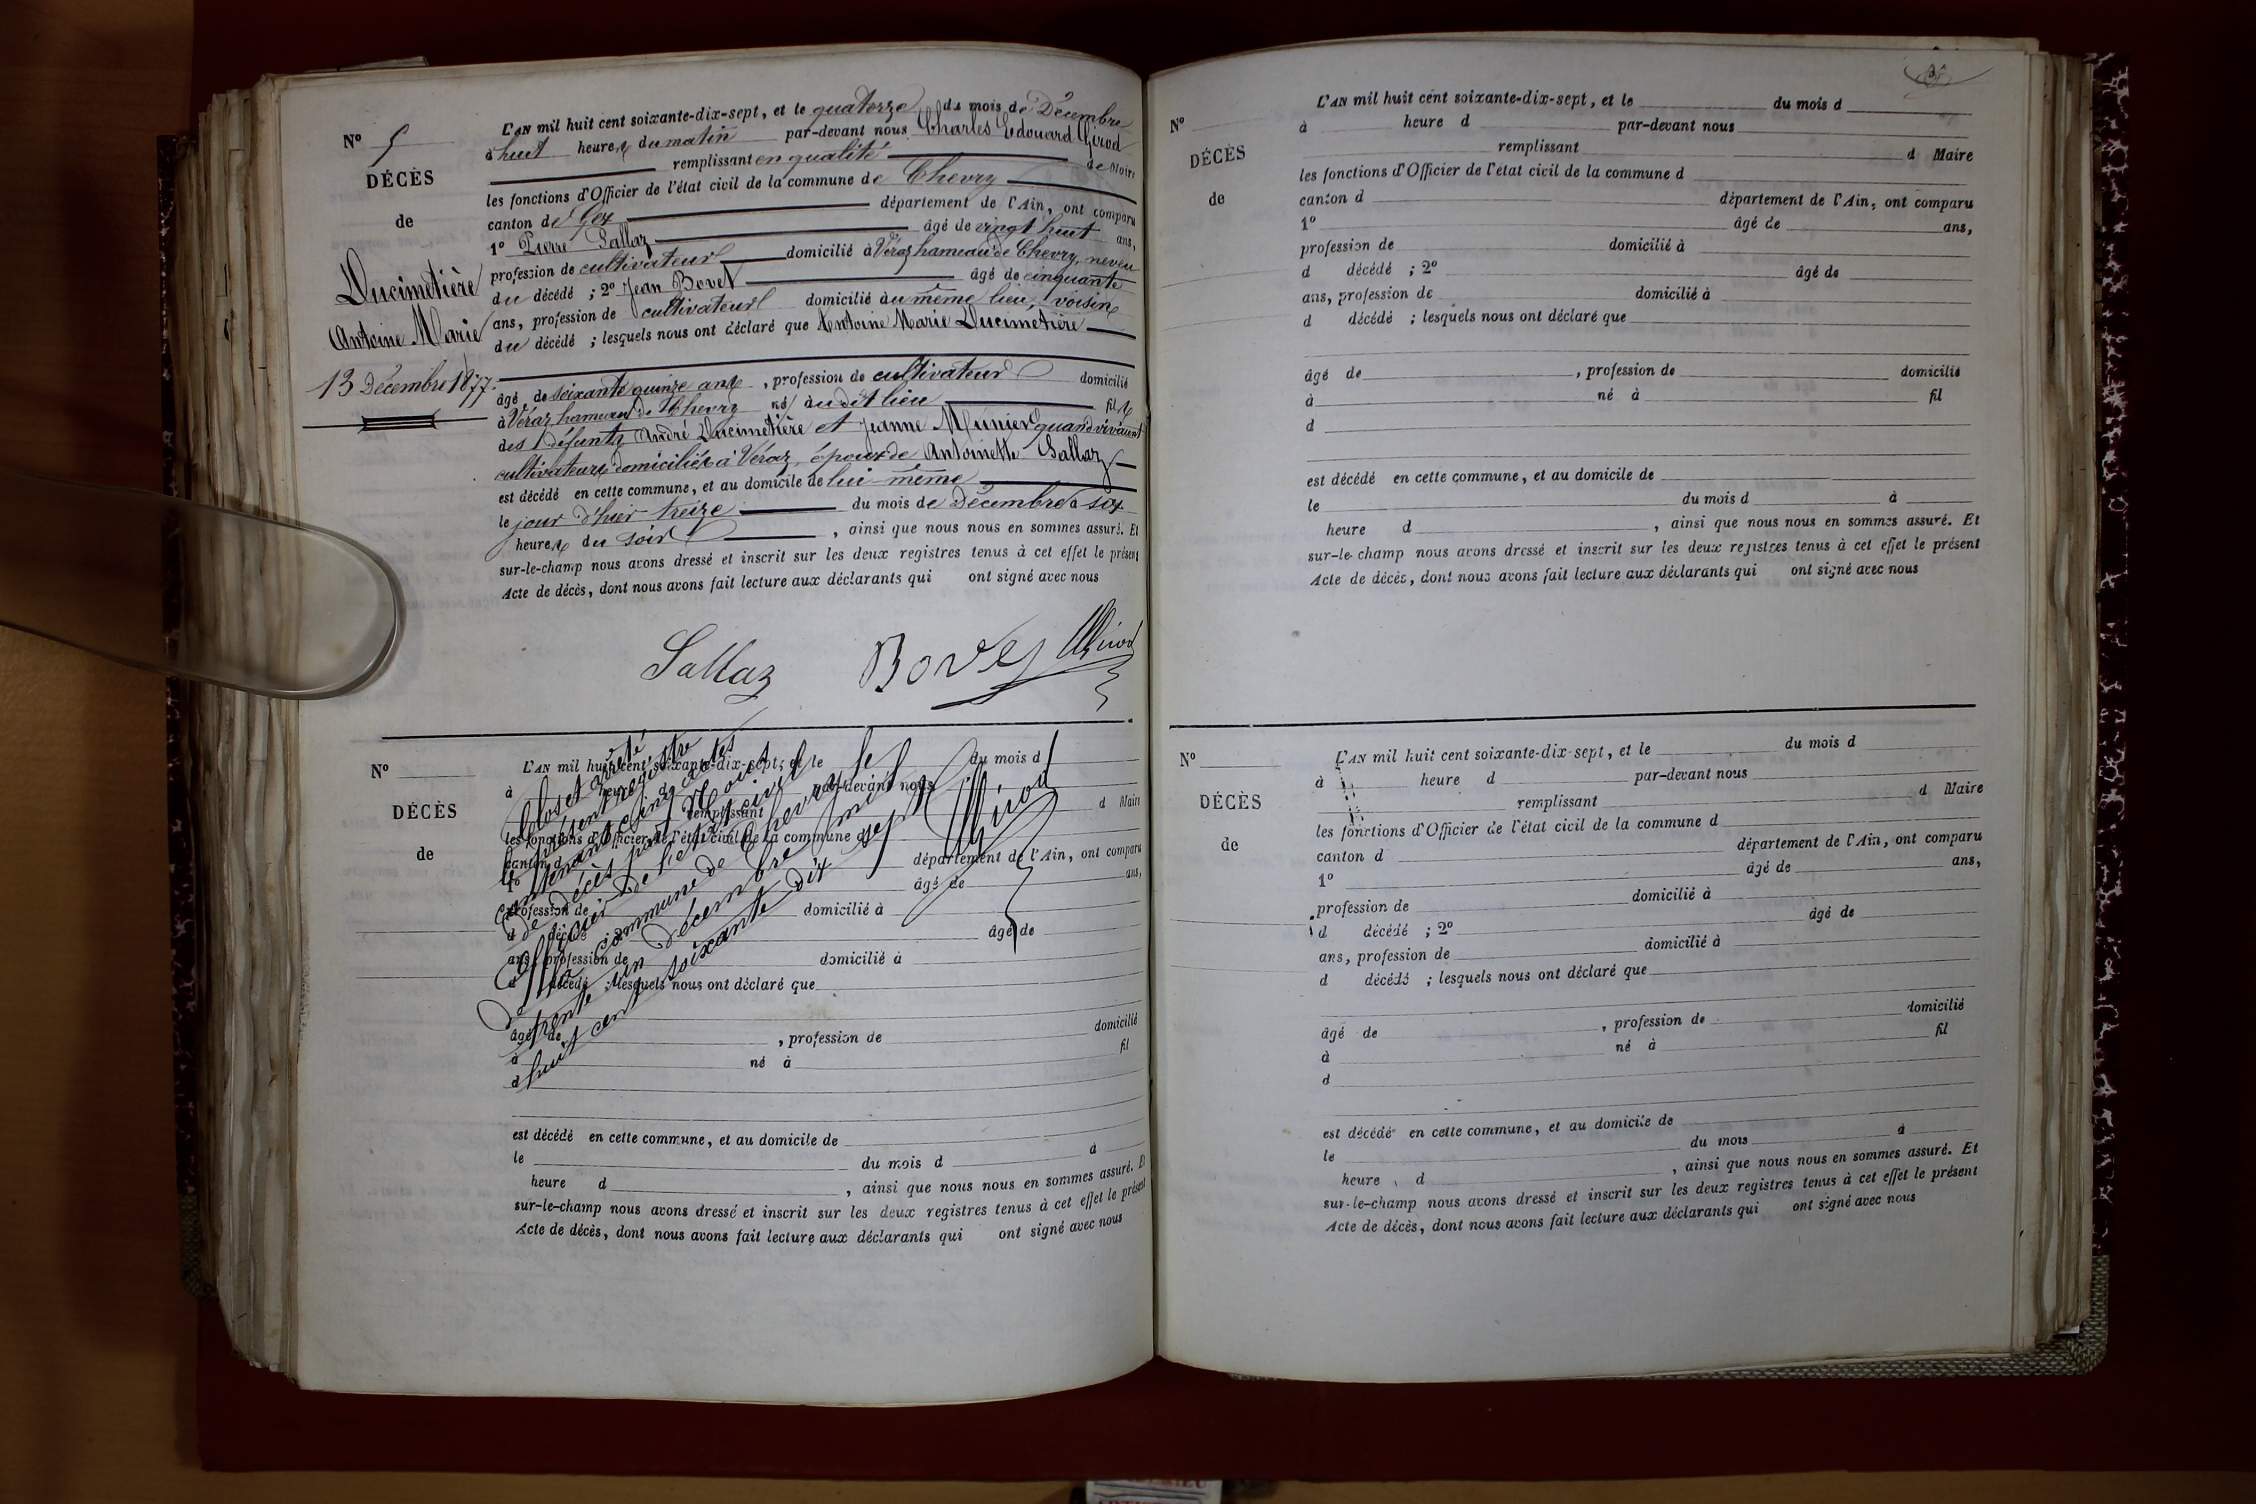 N° 5
DÉCÈS
de
Ducimetière
Antoine Marie
13 Décembre 1877.
L'AN mil huit cent soixante-dix-sept, et le quatorze du mois de Décembre
à huit heures du matin par-devant nous Charles Edouard Girod
remplissant en qualité de Maire
les fonctions d'Officier de l'état civil de la commune de Chevry
canton de Gex département de l'Ain, ont comparu
1° Pierre Sallaz âgé de vingt huit ans,
profession de cultivateur domicilié à Véraz hameau de Chevry, neveu
du décédé ; 2° Jean Bovet âgé de cinquante
ans, profession de cultivateur domicilié au même lieu, voisin
du décédé ; lesquels nous ont déclaré que Antoine Marie Ducimetière
âgé de soixante quinze ans, profession de cultivateur domicilié
à Véraz hameau de Chevry né au dit lieu fils
des défunts André Ducimetière et Jeanne Munier quand vivaient
cultivateurs domiciliés à Véraz, époux de Antoinette Sallaz
est décédé en cette commune, et au domicile de lui-même
le jour d'hier treize du mois de Décembre à six
heures du soir, ainsi que nous nous en sommes assuré. Et
sur-le-champ nous avons dressé et inscrit sur les deux registres tenus à cet effet le présent
Acte de décès, dont nous avons fait lecture aux déclarants qui ont signé avec nous
Sallaz Bovet Girod
N°
DÉCÈS
de
L'AN mil huit cent soixante-dix-sept, et le du mois d
à heure par-devant nous
remplissant d Maire
les fonctions d'Officier de l'état civil de la commune d
canton d département de l'Ain, ont comparu
1° âgé de ans,
profession de domicilié à
d décédé ; 2° âgé de
ans, profession de domicilié à
d décédé ; lesquels nous ont déclaré que
âgé de , profession de domicilié
à né à fil
d
est décédé en cette commune, et au domicile de
le du mois d à
heure d , ainsi que nous nous en sommes assuré. Et
sur-le-champ nous avons dressé et inscrit sur les deux registres tenus à cet effet le présent
Acte de décès, dont nous avons fait lecture aux déclarants qui ont signé avec nous
Clos et arrêté
le présent registre
contenant cinq actes
de décès par Nous
Officier de l'état civil
de la commune de Chevry le
trente un décembre mil
huit cent soixante dix sept
Girod
N°
DÉCÈS
de
L'AN mil huit cent soixante-dix-sept, et le du mois d
à heure d par-devant nous
remplissant d Maire
les fonctions d'Officier de l'état civil de la commune d
canton d département de l'Ain, ont comparu
1° âgé de ans,
profession de domicilié à
d décédé ; 2° âgé de
ans, profession de domicilié à
d décédé ; lesquels nous ont déclaré que
âgé de , profession de domicilié
à né à fil
d
est décédé en cette commune, et au domicile de
le du mois d à
heure d , ainsi que nous nous en sommes assuré. Et
sur-le-champ nous avons dressé et inscrit sur les deux registres tenus à cet effet le présent
Acte de décès, dont nous avons fait lecture aux déclarants qui ont signé avec nous
N°
DÉCÈS
de
L'AN mil huit cent soixante-dix-sept, et le du mois d
à heure d par-devant nous
remplissant d Maire
les fonctions d'Officier de l'état civil de la commune d
canton d département de l'Ain, ont comparu
1° âgé de ans,
profession de domicilié à
d décédé ; 2° âgé de
ans, profession de domicilié à
d décédé ; lesquels nous ont déclaré que
âgé de , profession de domicilié
à né à fil
d
est décédé en cette commune, et au domicile de
le du mois à
heure d , ainsi que nous nous en sommes assuré. Et
sur-le-champ nous avons dressé et inscrit sur les deux registres tenus à cet effet le présent
Acte de décès, dont nous avons fait lecture aux déclarants qui ont signé avec nous